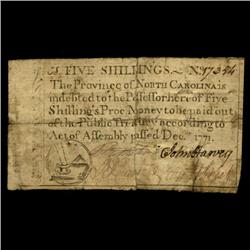 FIVE SHILLINGS. No. 17354
The Province of NORTH CAROLINA is
indebted to the Possessor hereof Five
Shillings Proc Money to be paid out
of the Public Treasury according to
Act of Assembly passed Decr. 1771.
John Harvey